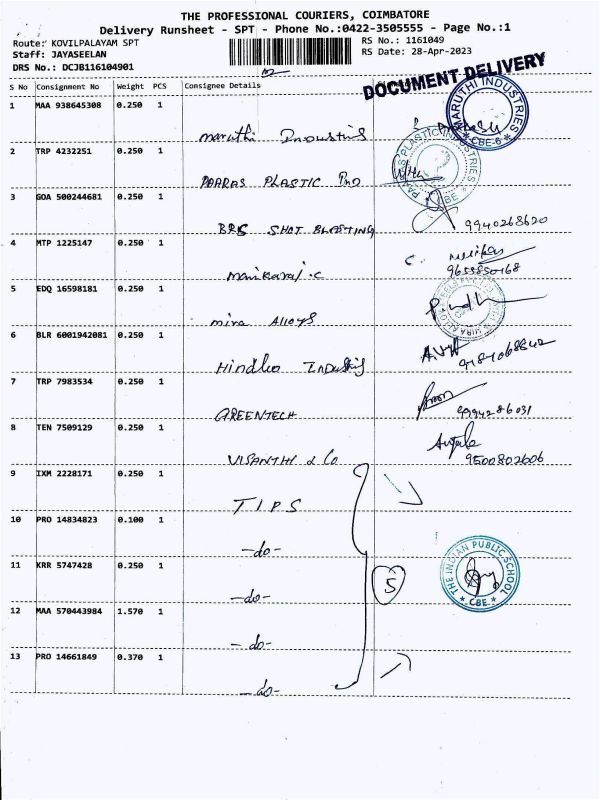 THE PROFESSIONAL COURIERS, COIMBATORE
Delivery Runsheet - SPT - Phone No.:0422-3505555 - Page No.:1
Route: KOVILPALAYAM SPT
RS No.: 1161049
Staff: JAYASEELAN
RS Date: 28-Apr-2023
DRS No.: DCJB116104901
DOCUMENT DELIVERY
S No Consignment No Weight PCS Consignee Details
1 MAA 938645308 0.250 1
Maruthi Industris
MARUTHI INDUSTRIES
* CBE-6 *
2 TRP 4232251 0.250 1
PAARAS PLASTIC IND
PAARAS PLASTIC INDUSTRIES
CBE
3 GOA 500244681 0.250 1
BRS SHOT BLASTING
9940268620
4 MTP 1225147 0.250 1
Manikaraj.c
9655850168
5 EDQ 16598181 0.250 1
mira Alloys
6 BLR 6001942081 0.250 1
Hindho Industris
7 TRP 7983534 0.250 1
GREENTECH
8 TEN 7509129 0.250 1
VISANTHI & Co
9500802606
9 IXM 2228171 0.250 1
TIPS
10 PRO 14834823 0.100 1
-do-
11 KRR 5747428 0.250 1
-do-
5
THE INDIAN PUBLIC SCHOOL
* CBE *
12 MAA 570443984 1.570 1
-do-
13 PRO 14661849 0.370 1
-do-